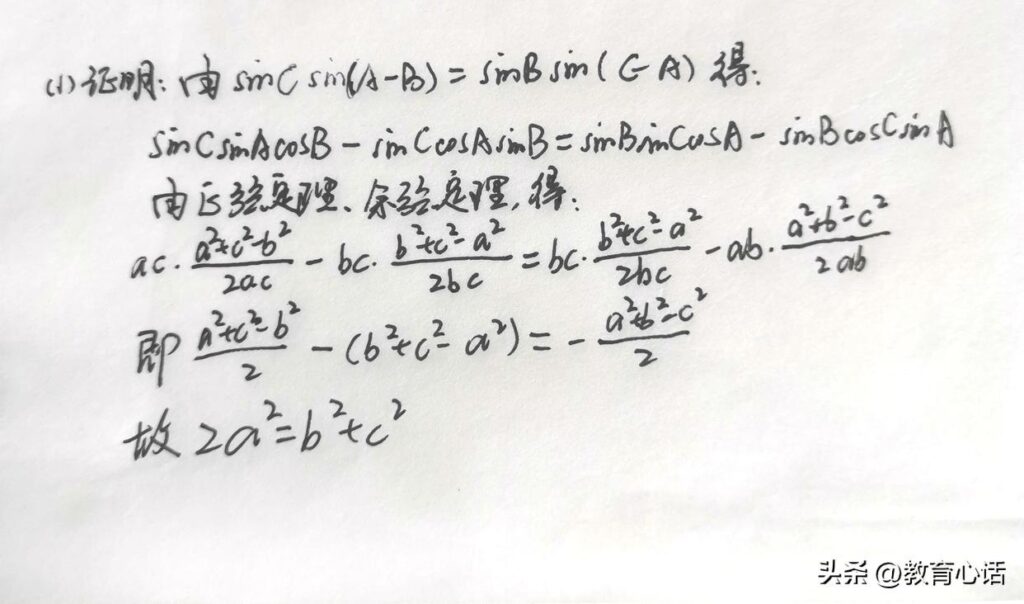 (1)证明:由 sinC sin(A-B) = sinB sin(C-A) 得:
sinCsinAcosB - sinCcosAsinB = sinBsinCcosA - sinBcosCsinA
由正弦定理、余弦定理,得:
ac·\frac{a²+c²-b²}{2ac} - bc·\frac{b²+c²-a²}{2bc} = bc·\frac{b²+c²-a²}{2bc} - ab·\frac{a²+b²-c²}{2ab}
即 \frac{a²+c²-b²}{2} - (b²+c²-a²) = -\frac{a²+b²-c²}{2}
故 2a²=b²+c²
头条 @教育心话